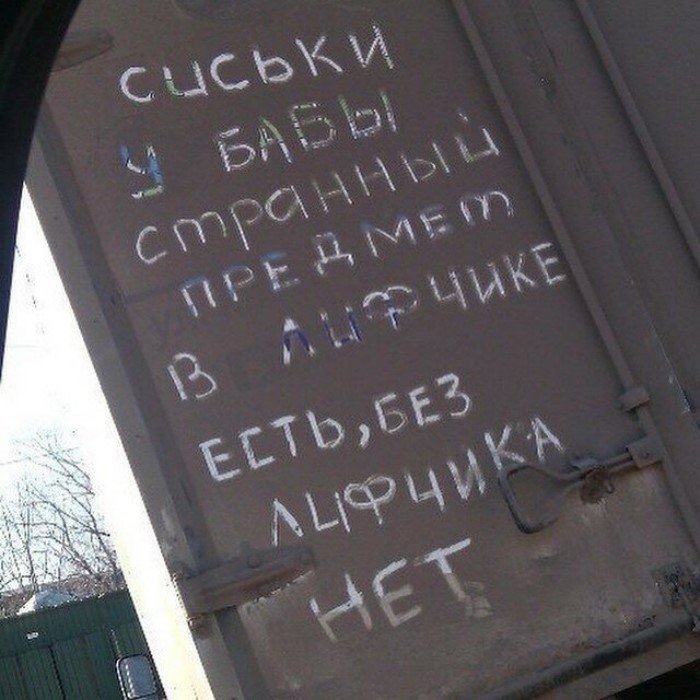 сиськи
у БАБЫ
странный
ПРЕДМЕТ
В ЛИФЧИКЕ
ЕСТЬ, БЕЗ
ЛИФЧИКА
НЕТ